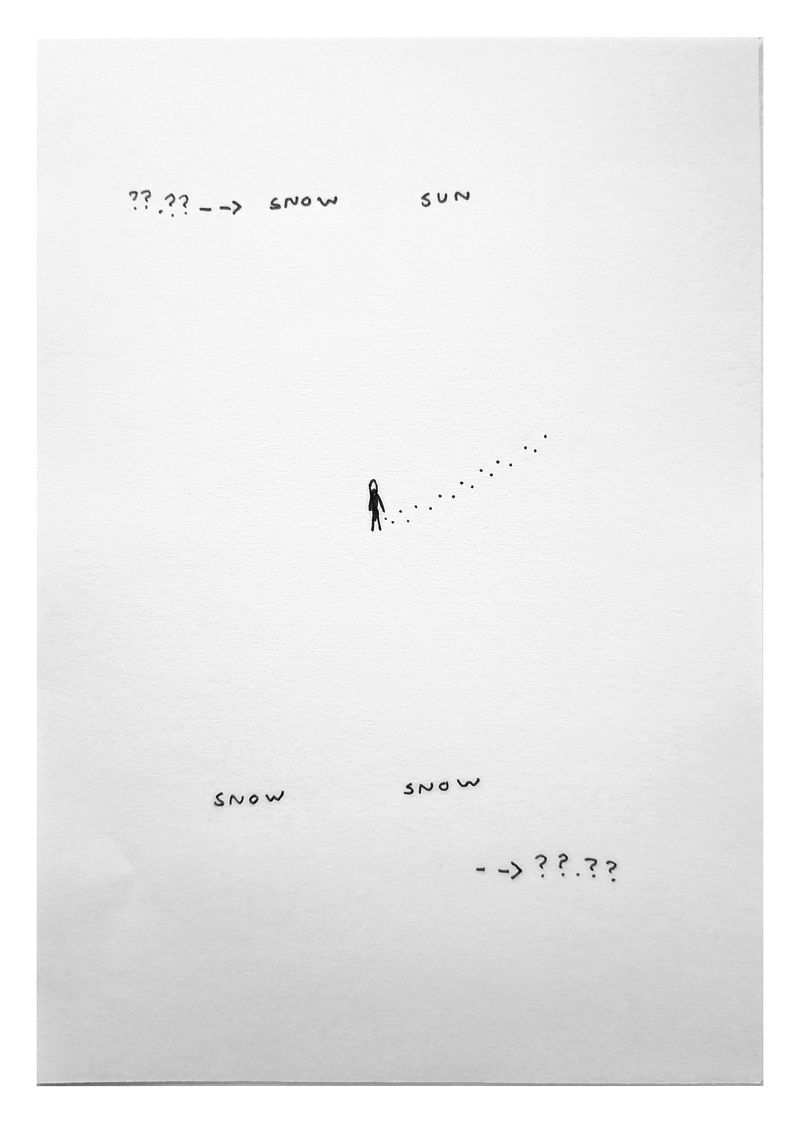 ??.?? - -> SNOW SUN
SNOW SNOW
- -> ??.??